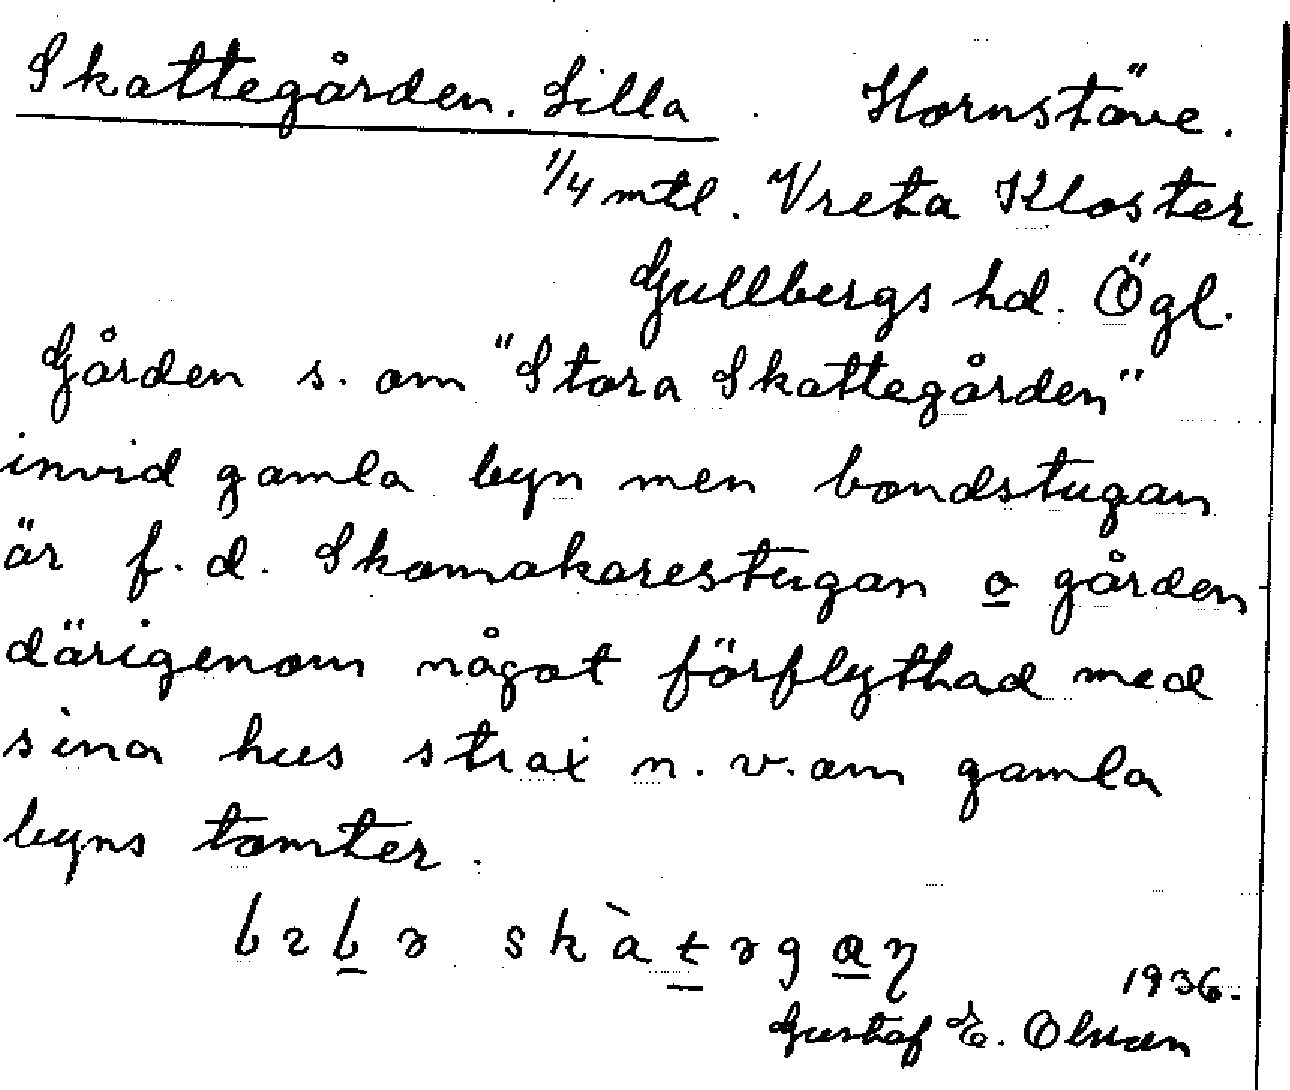 Skattegården. Lilla. Hornstäve.
1/4 mtl. Vreta Kloster
Gullbergs hd. Ögl.
Gården s. om "Stora Skattegården"
invid gamla byn men bondstugan
är f. d. Skomakarestugan o gården
därigenom något förflyttad med
sina hus strax n. v. om gamla
byns tomter.
1936.
Gustaf E. Olsson